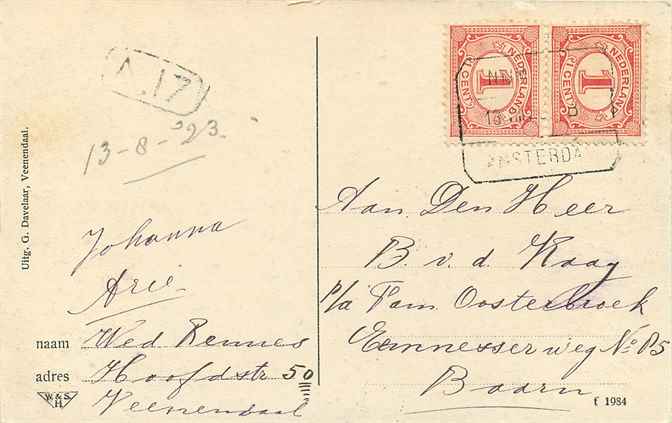 A.17
13-8-'23.
Uitg. G. Davelaar, Veenendaal.
Johanna
Arie
naam Wed Rennes
adres Hoofdstr 50
Veenendaal
W & S
H
NEDERLAND
1
1 CENT
NEDERLAND
1
1 CENT
AMSTERDA
Aan Den Heer
B v. d. Kaag
P/a Fam Oosterbroek
Eemnesserweg No 85
Baarn
f 1984